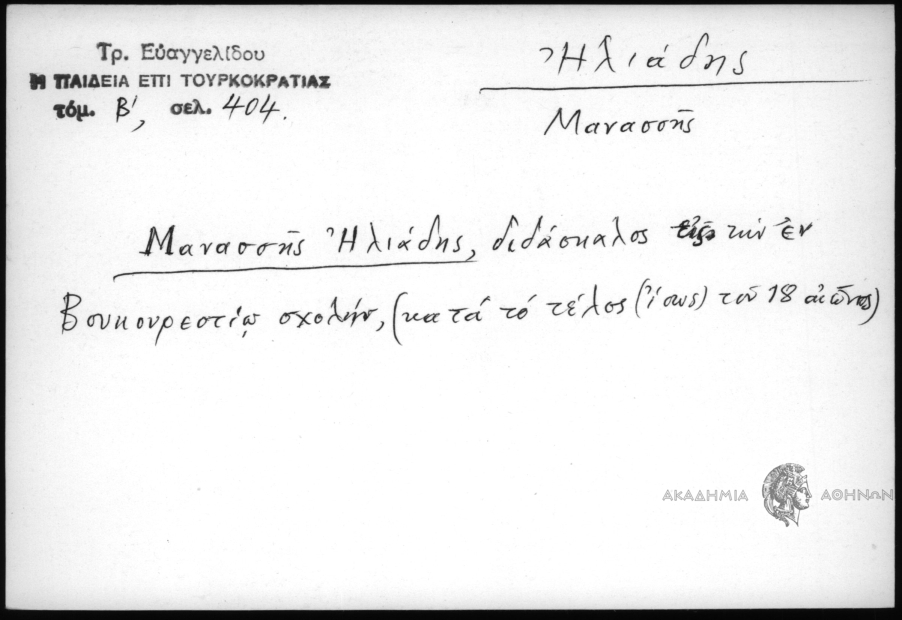 Τρ. Εὐαγγελίδου
Η ΠΑΙΔΕΙΑ ΕΠΙ ΤΟΥΡΚΟΚΡΑΤΙΑΣ
τόμ. Β', σελ. 404.
Ἠλιάδης
Μανασσῆς
Μανασσῆς Ἠλιάδης, διδάσκαλος εἰς τὴν ἐν
Βουκουρεστίῳ σχολήν, (κατά τό τέλος (ἴσως) τοῦ 18 αἰῶνος)
ΑΚΑΔΗΜΙΑ ΑΘΗΝΩΝ